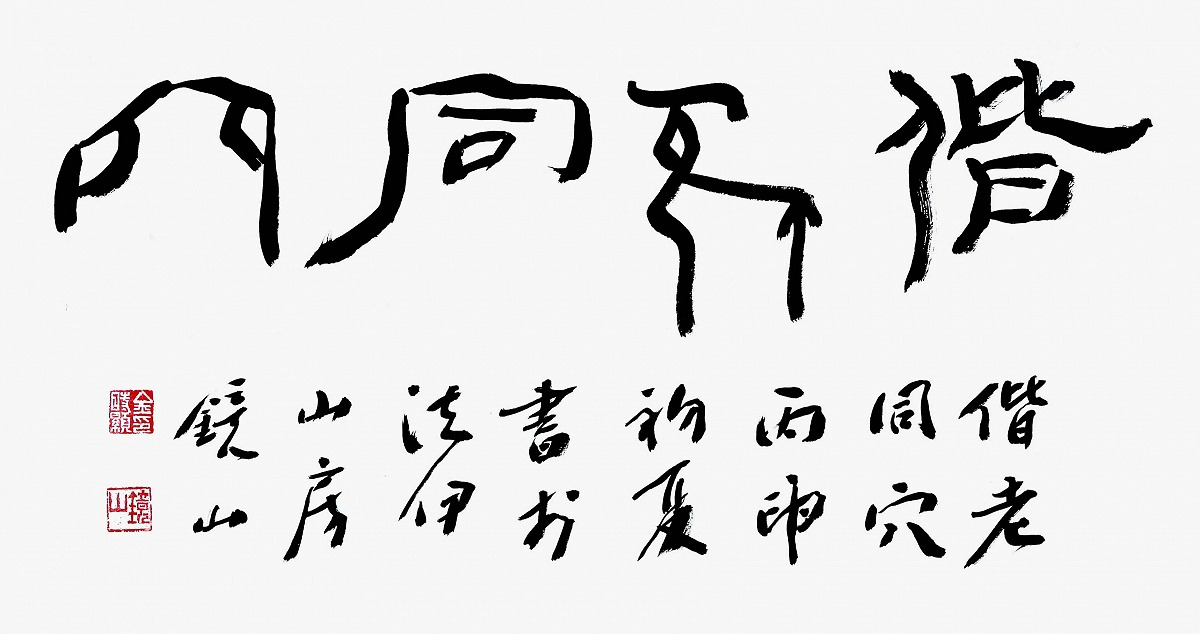 偕老同穴
偕老
同穴
丙申
初夏
書於
法伊
山房
鏡山
金印時顯
鏡山